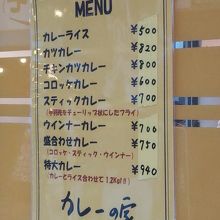 MENU
カレーライス ¥500
カツカレー ¥820
チキンカツカレー ¥800
コロッケカレー ¥600
スティックカレー ¥700
(手羽元をチューリップ状にしたフライ)
ウインナーカレー ¥700
盛合わせカレー ¥750
(コロッケ・スティック・ウインナー)
特大カレー ¥940
(カレーとライス合わせて1.2Kg!!)
カレーの虎